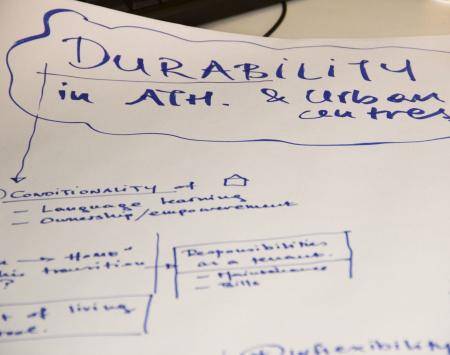 DURABILITY
in ATH. & Urban
centres
CONDITIONALITY of
- Language learning
- Ownership/empowerment
→ HOME"
this transition
?
Responsibilities
as a tenant.
- Maintenance
- Bills
of living
inflexibility